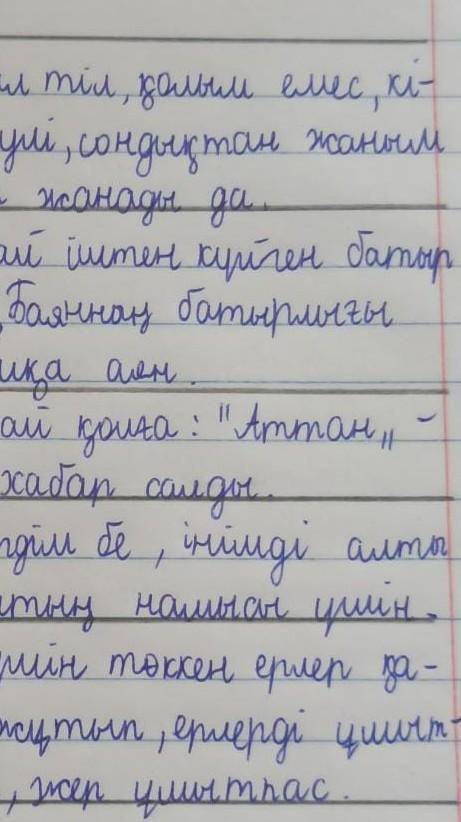 тіл, қолым емес, кі-
сондықтан жаным
жанады да.
іштен күйген батыр
Баяннаң батырлығы
аян.
қолға: "Аттан„ -
хабар салды.
бе, інімді алты
намысы үшін.
төккен ерлер қа-
жұтып, ерлерді ұмыт-
, жер ұмытпас.